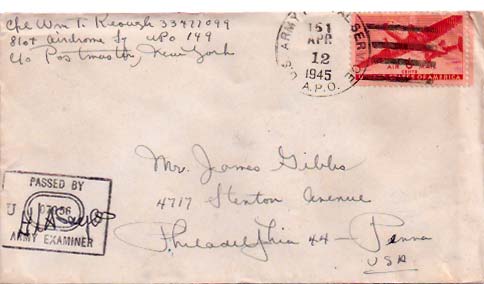 Cpl Wm T. Keough 33427099
816+ Airdrome Sq APO 149
c/o Postmaster, New York
U.S. ARMY POSTAL SER
161
APR
12
1945
A.P.O.
AIR 6 CENTS
OF AMERICA
Mr. James Gibbs
4717 Stenton Avenue
Philadelphia 44 - Penna
USA
PASSED BY
U
07056
ARMY EXAMINER